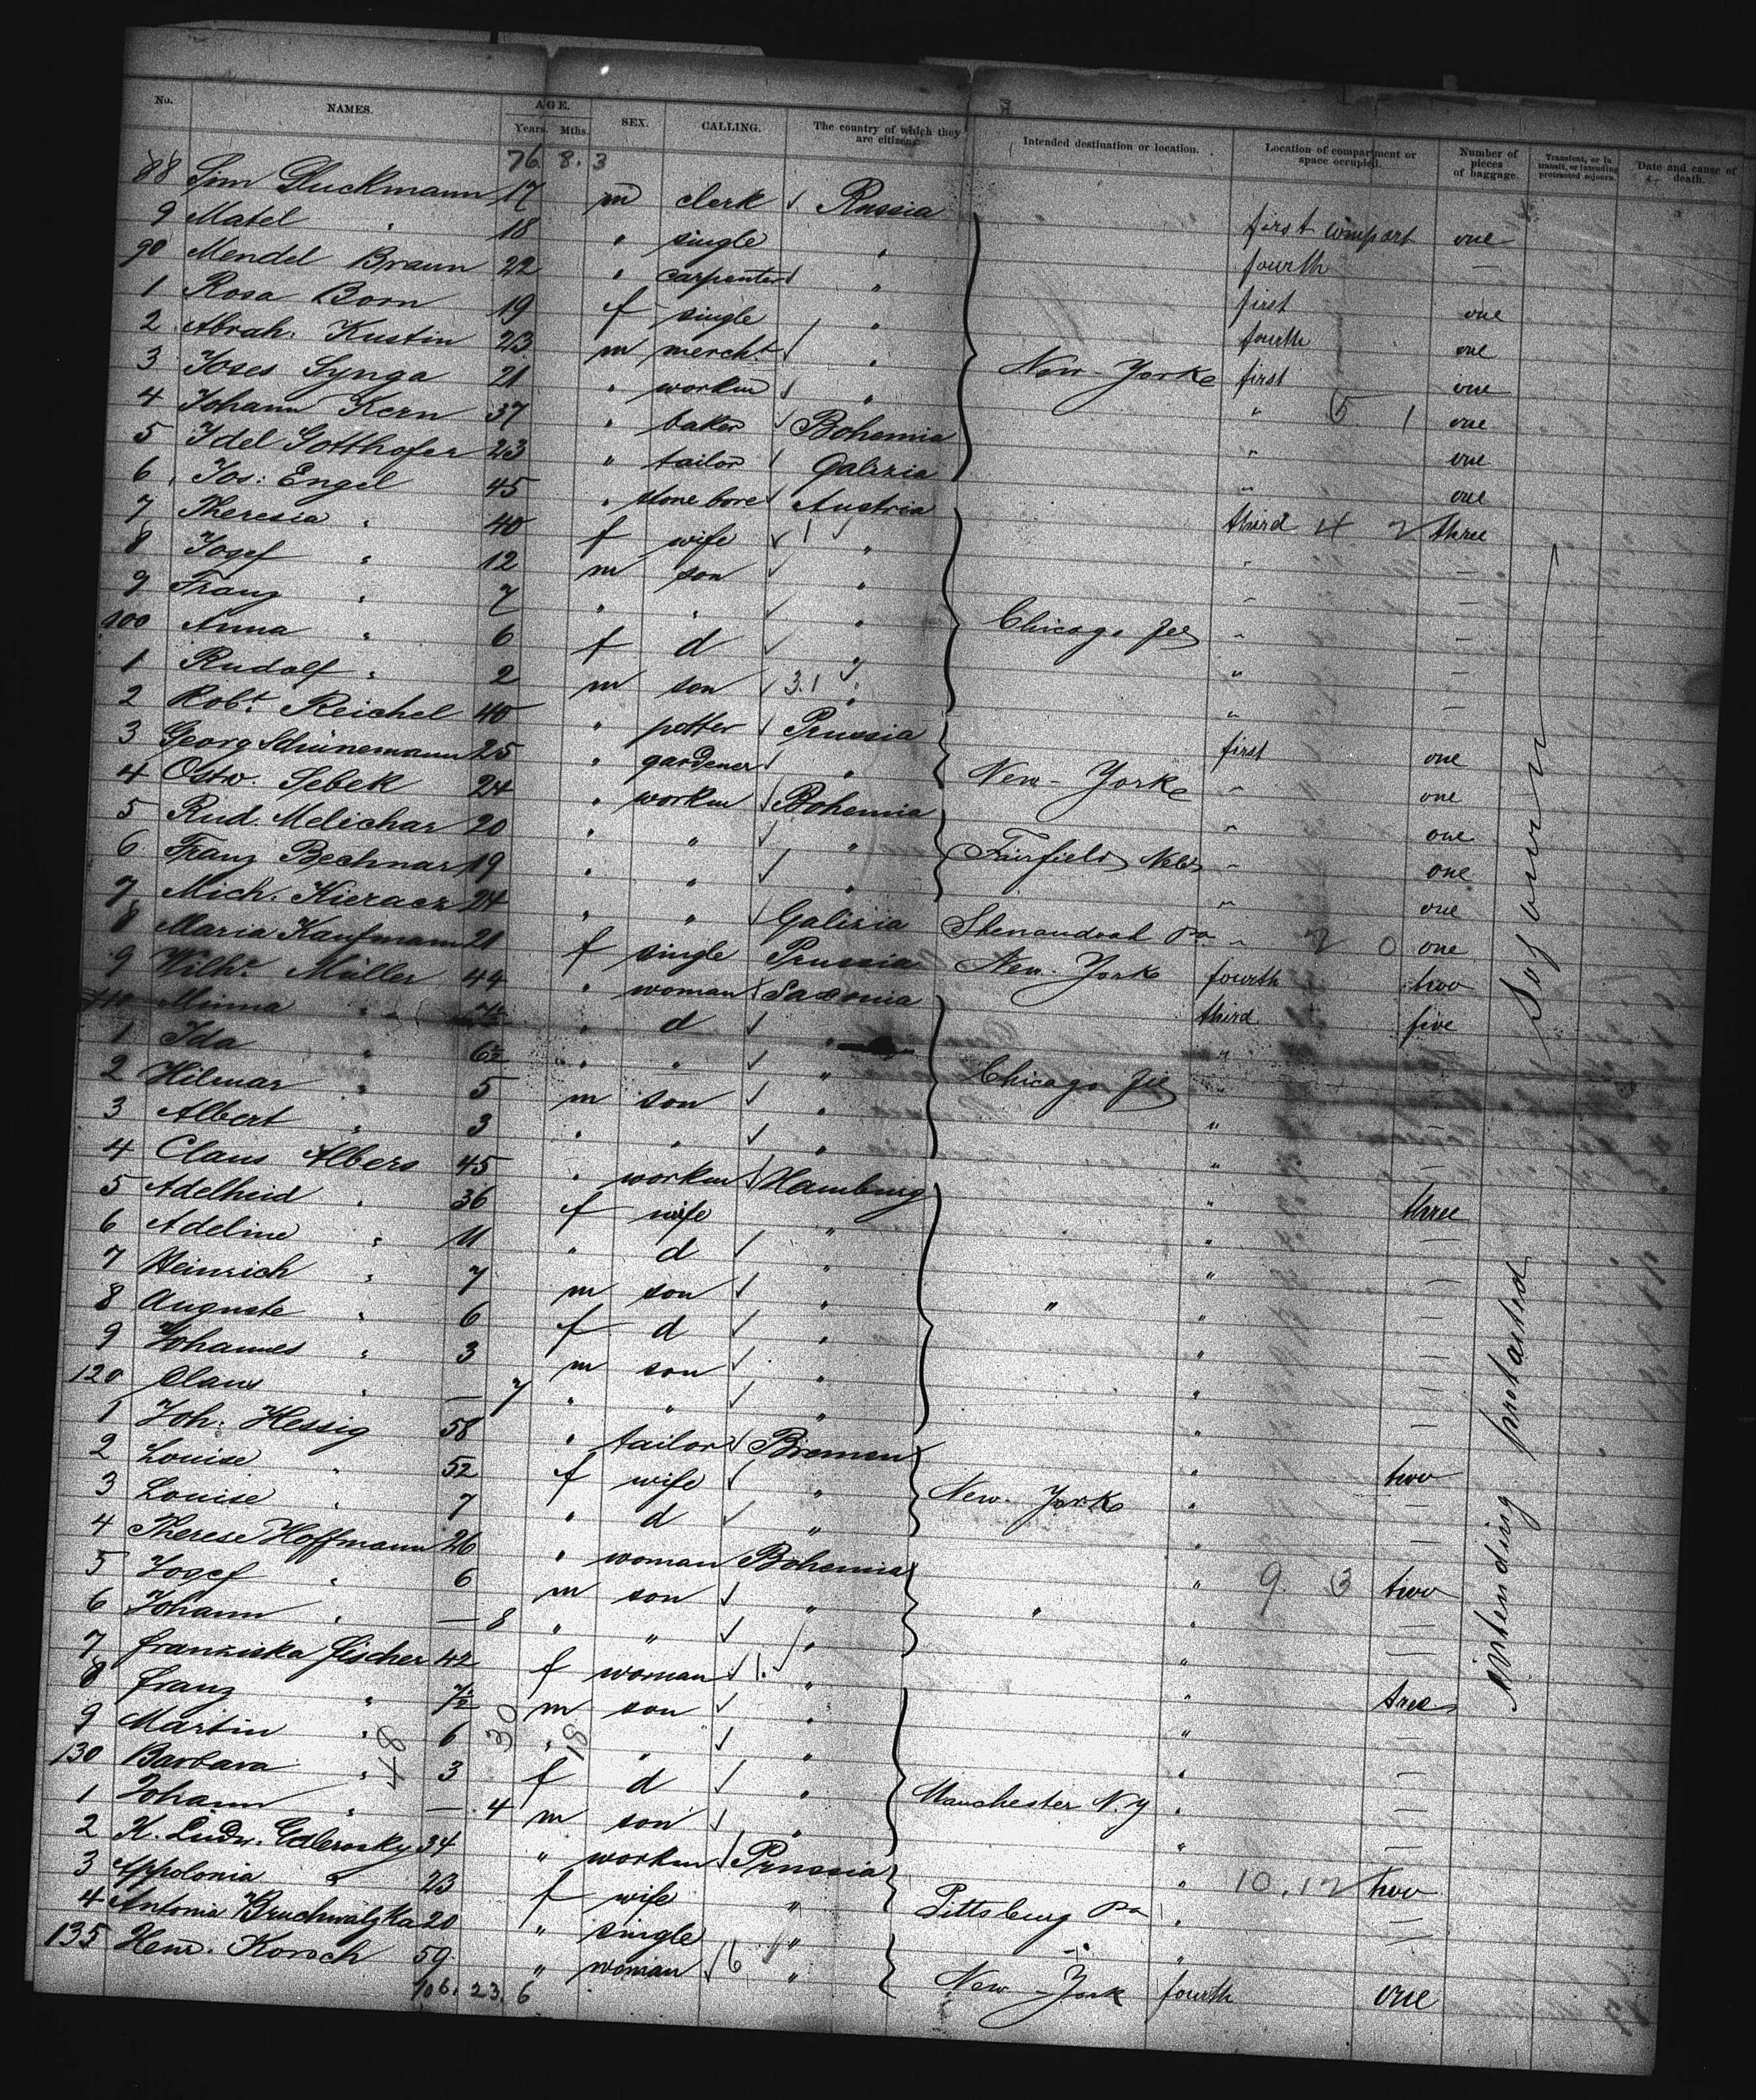 No. NAMES. AGE. Years. Mths. SEX. CALLING. The country of which they are citizens. Intended destination or location. Location of compartment or space occupied. Number of pieces of baggage. Transient, or in transit, or intending protracted sojourn. Date and cause of death.
76. 8. 3
88 Sim Gluckmann 17 m clerk Russia first compart one
9 Matel " 18 " single " fourth —
90 Mendel Braun 22 " carpenter " first one
1 Rosa Born 19 f single " fourth one
2 Abrah: Kustin 23 m mercht " New-York first one
3 Joses Synga 21 " workm " " 5 1 one
4 Johann Kern 37 " baker Bohemia " one
5 Idel Gotthofer 23 " tailor Galizia " one
6 Jos: Engel 45 " stone bore Austria third 4 2 three
7 Theresia " 40 f wife 1 " " —
8 Josef " 12 m son " " —
9 Franz " 7 " " " " —
100 Anna " 6 f d " Chicago Ill " —
1 Rudolf " 2 m son 3.1 " " —
2 Robt. Reichel 40 " potter Prussia first one
3 Georg Schünemann 25 " gardener " New-York " one
4 Ostw. Sebek 24 " workm Bohemia " one
5 Rud. Melichar 20 " " " Fairfield Neb " one
6 Franz Bechnar 19 " " " " one
7 Mich. Kieracz 24 " " Galizia Shenandoah Pa " 2 0 one
8 Maria Kaufmann 21 f single Prussia New-York fourth two
9 Wilhe. Müller 44 " woman Saxonia third five
110 Minna " 7½ " d " " —
1 Ida " 6½ " " " Chicago Ill " —
2 Hilmar " 5 m son " " —
3 Albert " 3 " " " " —
4 Claus Albers 45 " workm Hamburg " three
5 Adelheid " 36 f wife " " —
6 Adeline " 11 " d " " —
7 Heinrich " 7 m son " " " —
8 Auguste " 6 f d " " —
9 Johannes " 3 m son " " —
120 Claus " — 7 " " " " —
1 Joh: Hessig 58 " tailor Bremen " two
2 Louise " 52 f wife " New-York " —
3 Louise " 7 " d " " —
4 Therese Hoffmann 26 " woman Bohemia " 9. 3 two
5 Josef " 6 m son " " " —
6 Johann " — 8 " " " " —
7 Franziska Fischer 42 f woman 1. " "
8 Franz " 7½ m son " " —
9 Martin " 6 " " " " —
130 Barbara " 3 f d " Manchester N.Y " —
1 Johann " — 4 m son " " —
2 K. Ludw. 34 " workm Prussia " 10.12 two
3 Appolonia " 23 f wife " Pittsburg Pa " —
4 Antonia Bruchwalzka 20 " single " " " —
135 Henr. Korsch 59 " woman 6 " New-York fourth one
106. 23. 6
intending protracted sojourn